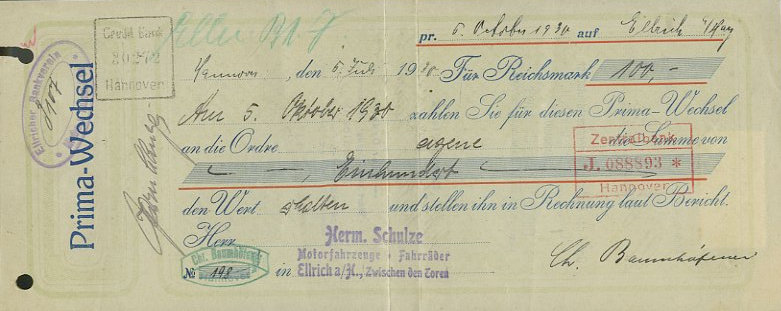 pr. 5. October 1930 auf Ellrich a/Harz
Hannover, den 5. Juli 1930 Für Reichsmark 100,-
Am 5. Oktober 1930 zahlen Sie für diesen Prima-Wechsel
an die Ordre eigene die Summe von
Einhundert
den Wert erhalten und stellen ihn in Rechnung laut Bericht.
Herr Herm. Schulze
Motorfahrzeuge - Fahrräder
in Ellrich a/H., Zwischen den Toren
Ch. Baumhöfener
Prima-Wechsel
Ellricher Bankverein
Credit Bank
Hannover
Zentralbank
J. 088893 *
Hannover
Chr. Baumhöfener
Hannover
№ 198